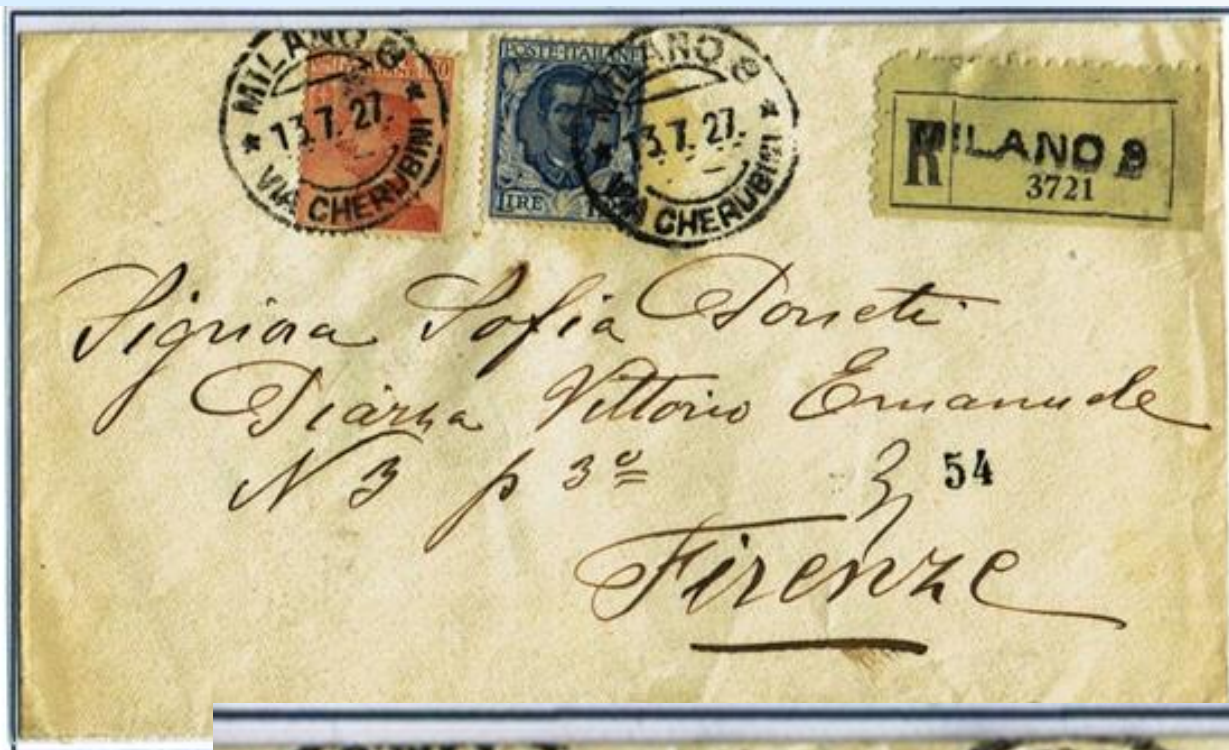 MILANO 8
13.7.27.
VIA CHERUBINI
60
POSTE ITALIANE
LIRE
MILANO 8
13.7.27.
VIA CHERUBINI
R
MILANO 8
3721
Signora Sofia
Piazza Vittorio Emanuele
N 3 p 3º
54
Firenze